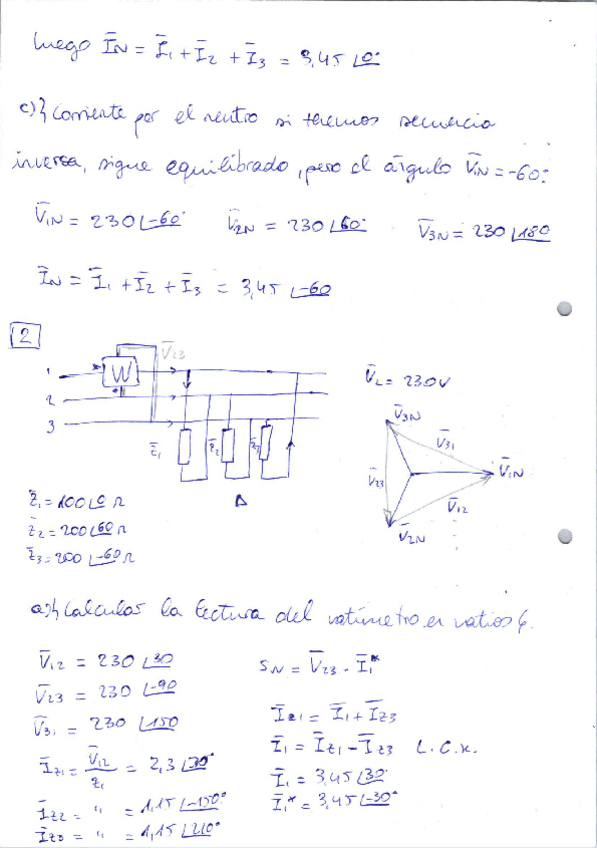 luego I̅N = I̅1 + I̅2 + I̅3 = 3,45 ∠0°
c) Corriente por el neutro si tenemos secuencia
inversa, sigue equilibrado, pero el ángulo V̅1N = -60°
V̅1N = 230 ∠-60° V̅2N = 230 ∠60° V̅3N = 230 ∠180
I̅N = I̅1 + I̅2 + I̅3 = 3,45 ∠-60
2
V̅23
1 W
2
3
Z̅1 Z̅2 Z̅3
Δ
V̅L = 230V
V̅3N
V̅31
V̅23 V̅1N
V̅12
V̅2N
Z̅1 = 100∠0 Ω
Z̅2 = 200∠60 Ω
Z̅3 = 200 ∠-60 Ω
a) Calcular la lectura del vatímetro en vatios
V̅12 = 230 ∠30
V̅23 = 230 ∠-90
V̅31 = 230 ∠150
I̅Z1 = V̅12/Z1 = 2,3 ∠30°
I̅Z2 = " = 1,15 ∠-150°
I̅Z3 = " = 1,15 ∠210°
SN = V̅23 · I̅1*
I̅Z1 = I̅1 + I̅Z3
I̅1 = I̅Z1 - I̅Z3 L.C.K.
I̅1 = 3,45 ∠30°
I̅1* = 3,45 ∠-30°